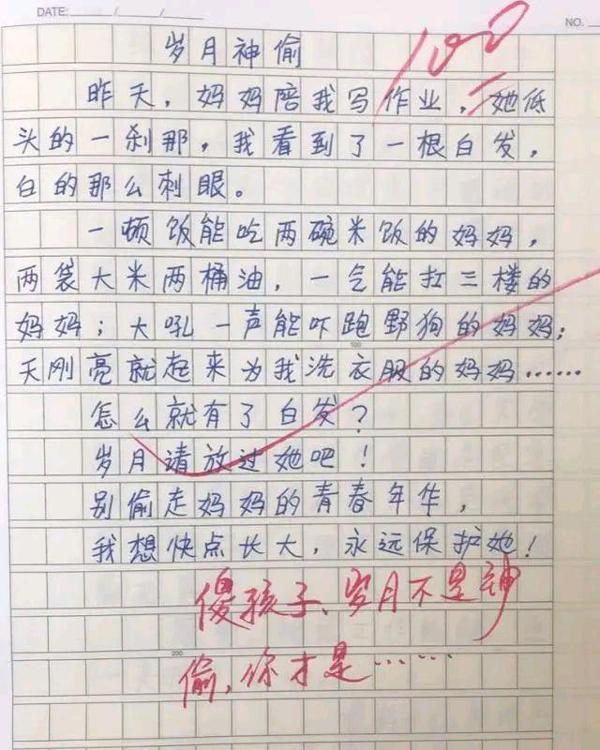 DATE: / /
NO.
岁月神偷
100
昨天，妈妈陪我写作业，她低
头的一刹那，我看到了一根白发，
白的那么刺眼。
一顿饭能吃两碗米饭的妈妈，
两袋大米两桶油，一气能扛三楼的
妈妈；大吼一声能吓跑野狗的妈妈；
100
天刚亮就起来为我洗衣服的妈妈……
怎么就有了白发？
岁月请放过她吧！
别偷走妈妈的青春年华，
我想快点长大，永远保护她！
傻孩子、岁月不是神
200
偷，你才是……